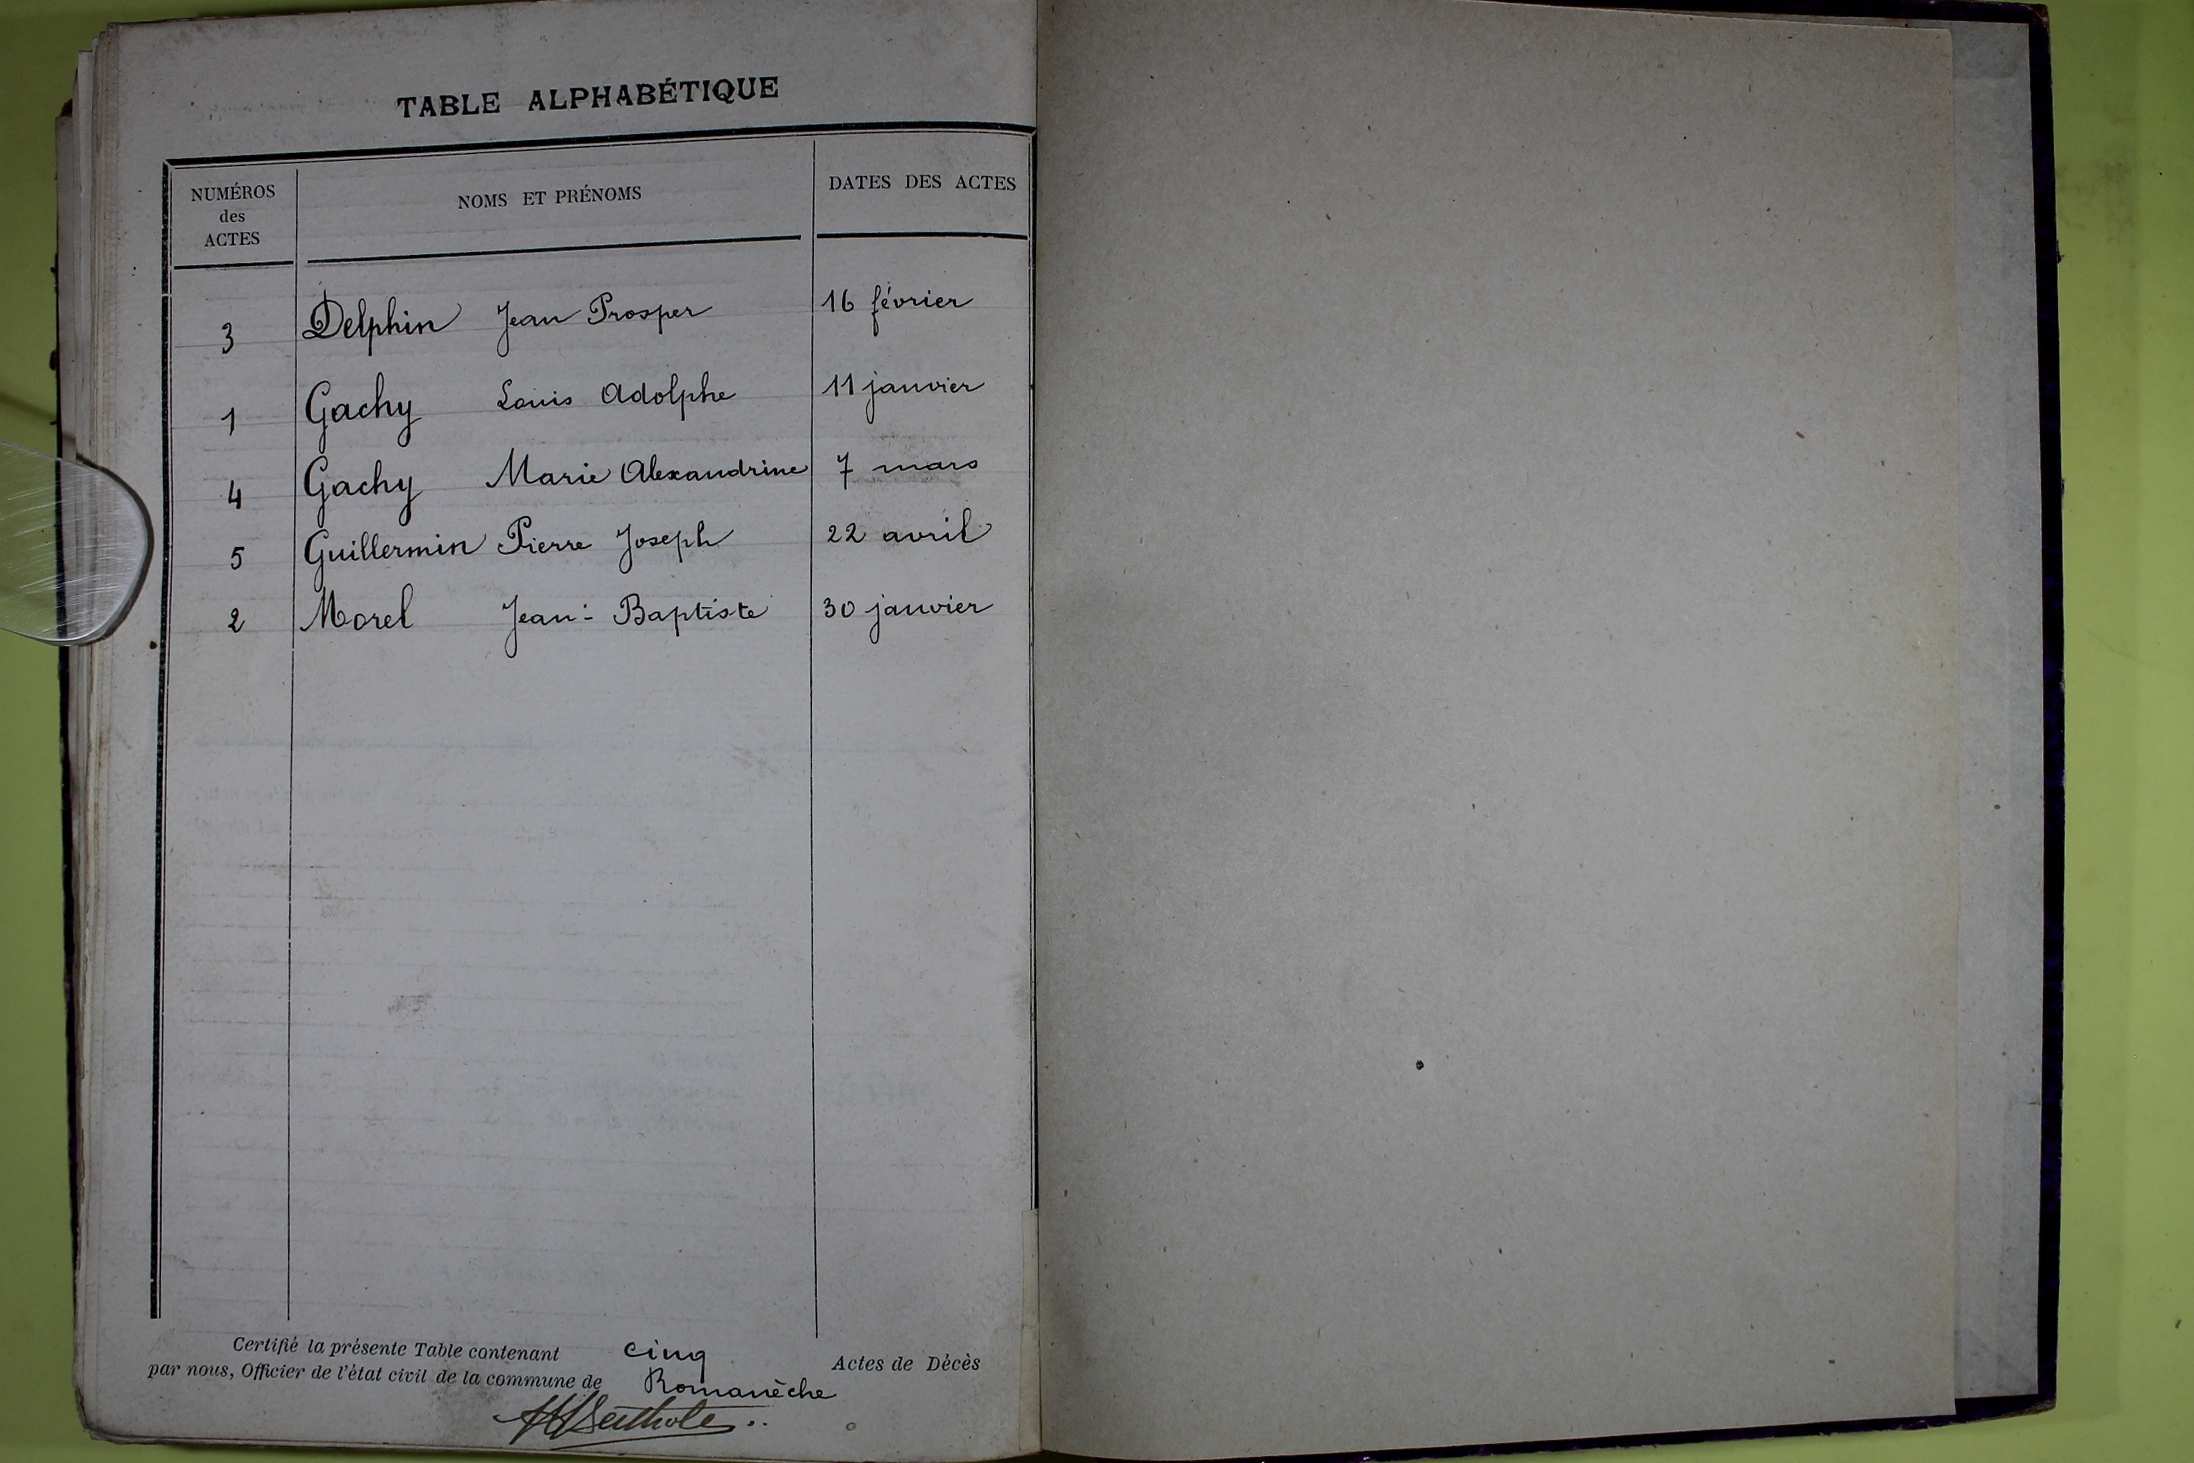 TABLE ALPHABÉTIQUE
NUMÉROS
des
ACTES
NOMS ET PRÉNOMS
DATES DES ACTES
3 Delphin Jean Prosper 16 février
1 Gachy Louis Adolphe 11 janvier
4 Gachy Marie Alexandrine 7 mars
5 Guillermin Pierre Joseph 22 avril
2 Morel Jean-Baptiste 30 janvier
Certifié la présente Table contenant cinq Actes de Décès
par nous, Officier de l'état civil de la commune de Romanèche